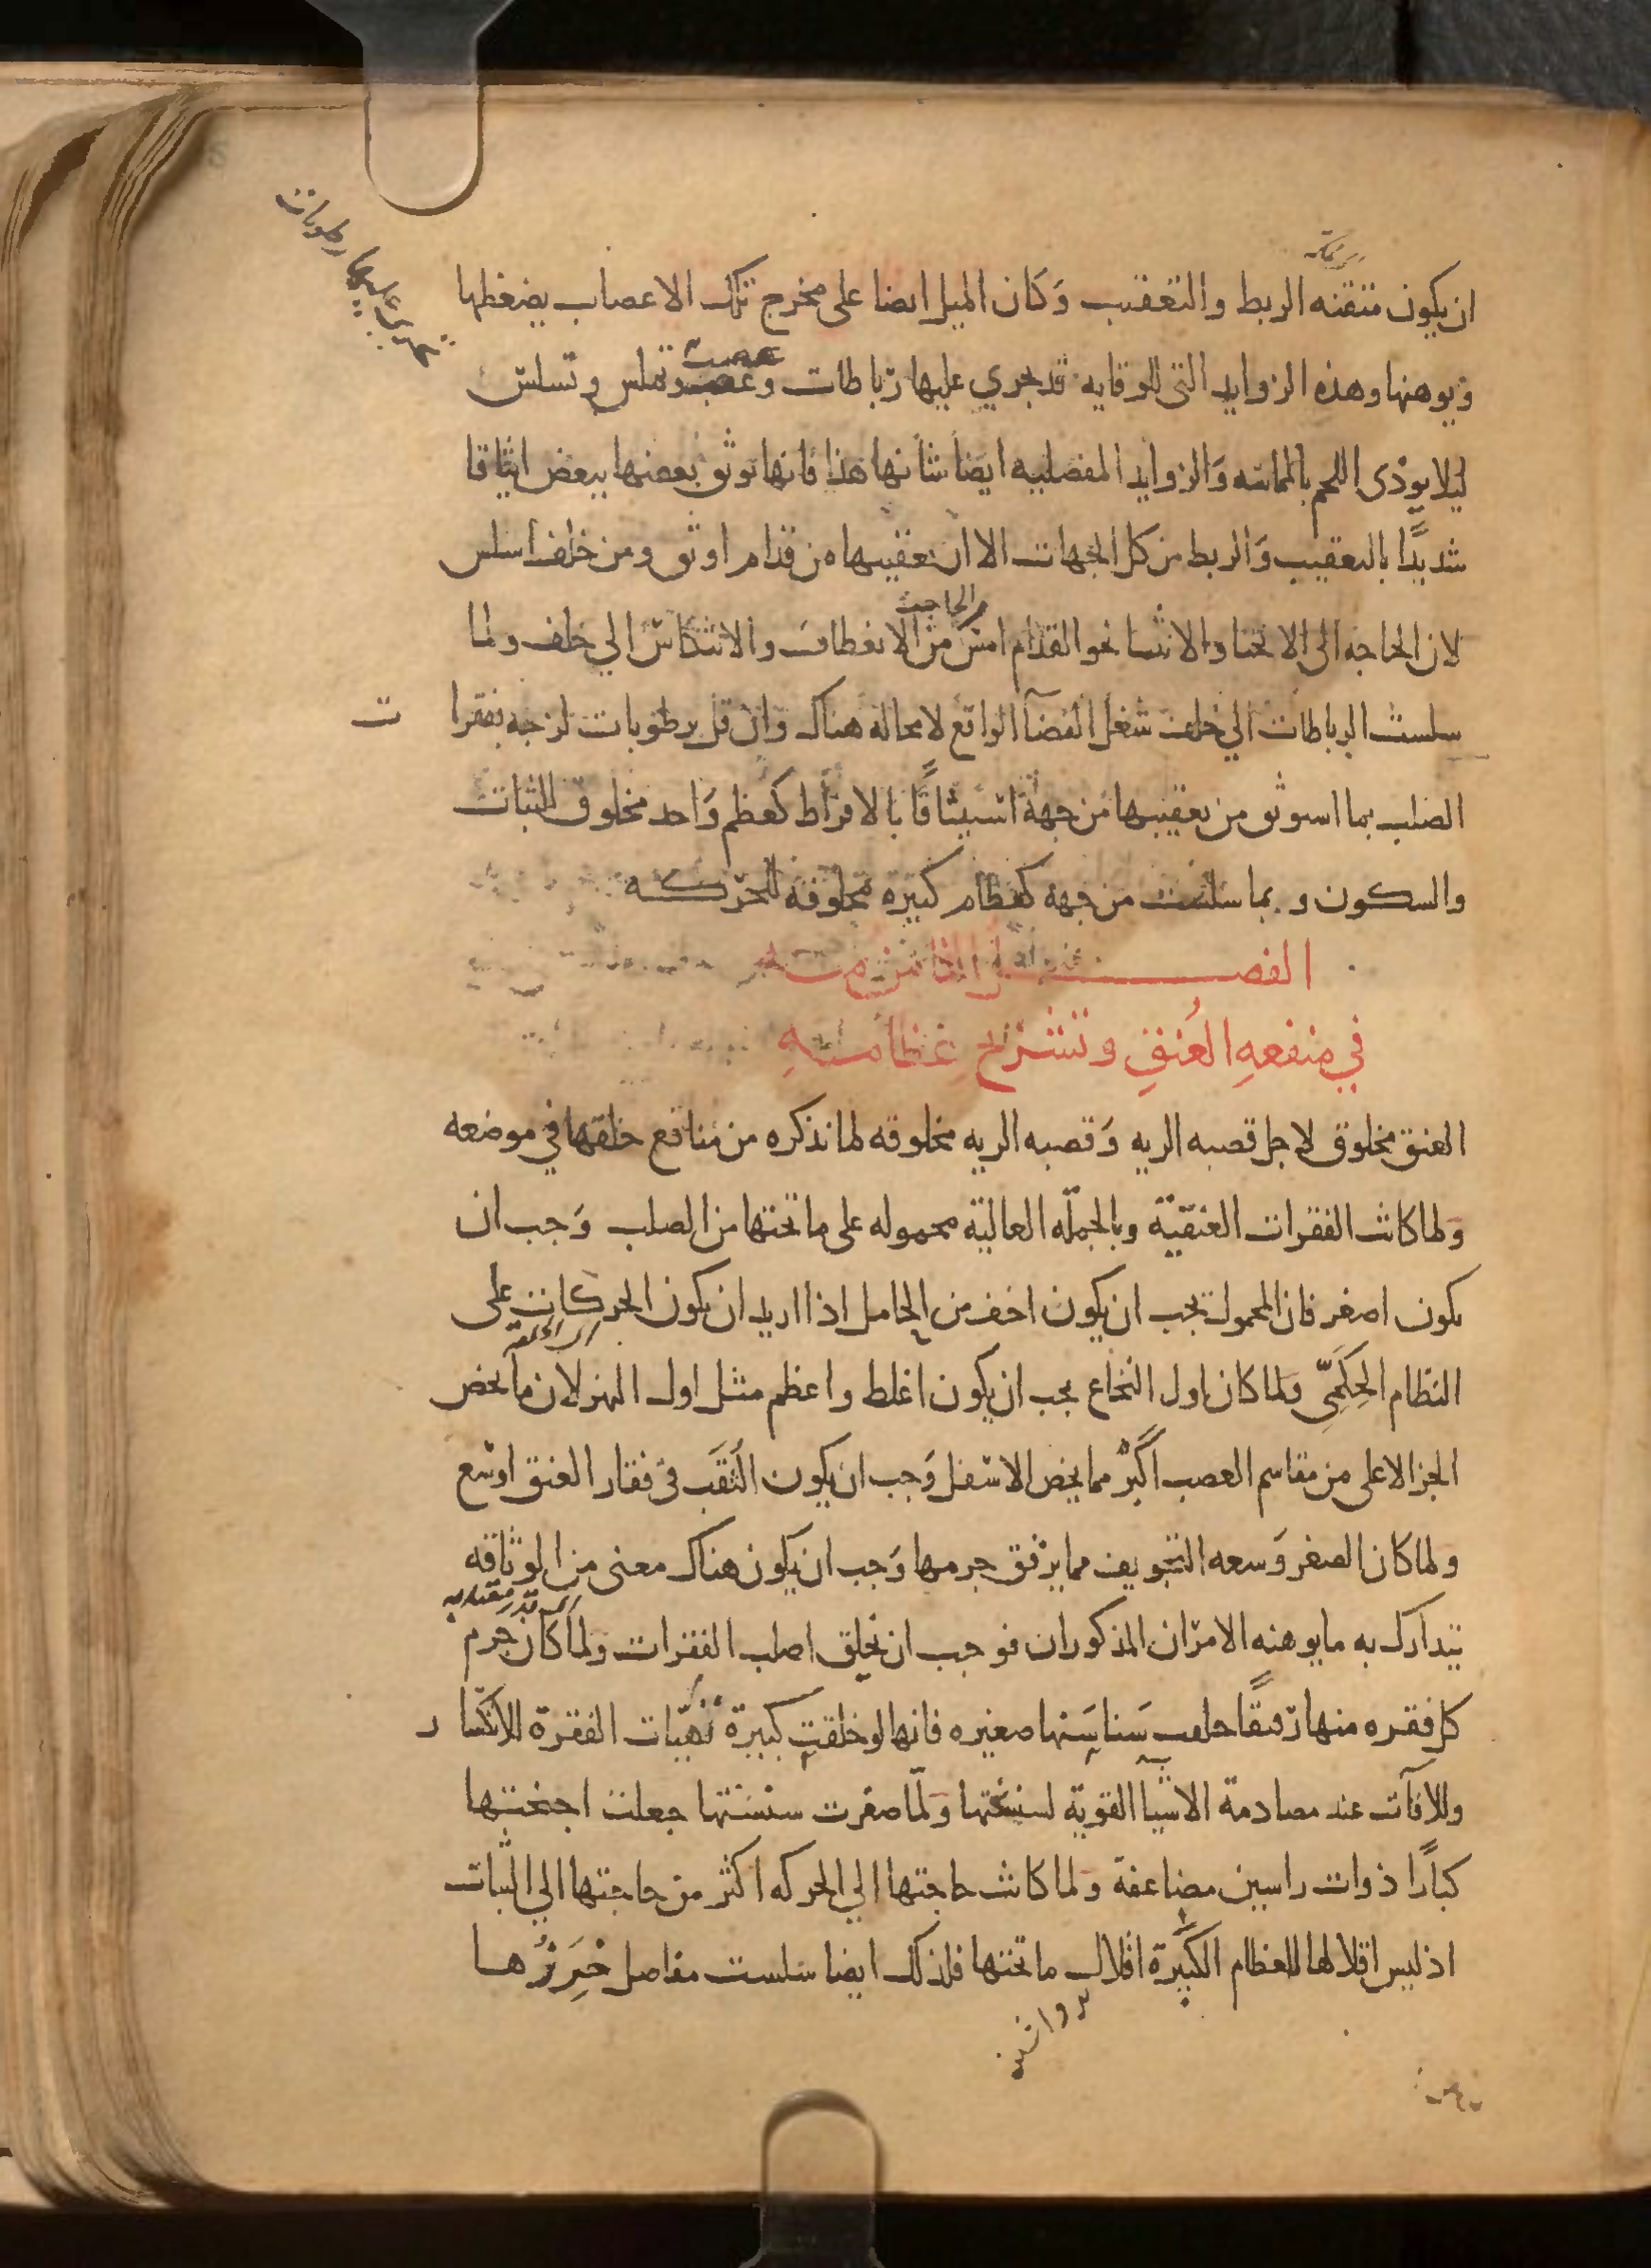 ان يكون متقنه الربط والتعقيب وَكان الميل ايضا على مخرج تلك الاعصاب يضغطها
ويوهنها وهذه الزوايد التى للوقايه قد يجري عليها رباطات وعصب وتملس وتسلس
ليلا يوذى اللحم بالمماسه وَالزوايد المفصليه ايضا شانها هذا فانها توثق بعضها ببعض ايثاقا
شديدًا بالتعقيب وَالربط من كل الجهات الا ان تعقيبها من قدام اوثق ومن خلف اسلس
لان الحاجه الى الانحنا والانثنا نحو القدام امس من الحاجة الانعطاف والانتكاس الي خلف ولما
سلست الرباطات الي خلف شغل الفضآ الواقع لا محالة هناك وان قل برطوبات لزجه ففقرات
الصلب بما استوثق من تعقيبها من جهة استيثاقًا بالافراط كعظم وَاحد مخلوق للثبات
والسكون وبما سلست من جهة كعظام كثيرة مخلوقة للحركـــه
الفصـــــل الثامن منه
في منفعهِ العُنقِ وتشريح عظامــهِ
العنق مخلوق لاجل قصبه الريه وَقصبه الريه مخلوقه لما نذكره من منافع خلقها في موضعه
وَلما كانت الفقرات العنقيّة وبالجملّه العالية محموله على ما تحتها من الصلب وَجب ان
يكون اصغر فان المحمول يجب ان يكون اخف من الحامل اذا اريد ان يكون الحركات على
النظام الحِكَمِىّ ولما كان اول النخاع يجب ان يكون اغلظ واعظم مثل اول النهر لان ما يخص
الجز الاعلى من مقاسم العصب اكبرُ مما يخص الاسفل وَجب ان يكون الثقَب فى فقار العنق اوسع
ولما كان الصغر وَسعه التجويف مما يرقق جرمها وَجب ان يكون هناك معنى من الوثاقه
يتدارك به ما يوهنه الامران المذكوران فوجب ان يخلق اصلب الفقرات ولما كان جرم
كل فقره منها رقيقًا خلقت سَناسَنها صغيره فانها لو خلقت كبيرة تهيّات الفقرة للانكسار
وللافآت عند مصادمة الاشيا القوية لسنسنتها وَلمّا صغرت سنسنتها جعلت اجنحتها
كبارًا ذوات راسين مضاعفة وَلما كانت حاجتها الي الحركه اكثر من حاجتها الي الثبات
اذ ليس اقلالها للعظام الكبيرة اقلال ما تحتها فلذلك ايضا سلست مفاصل خَرَزُها